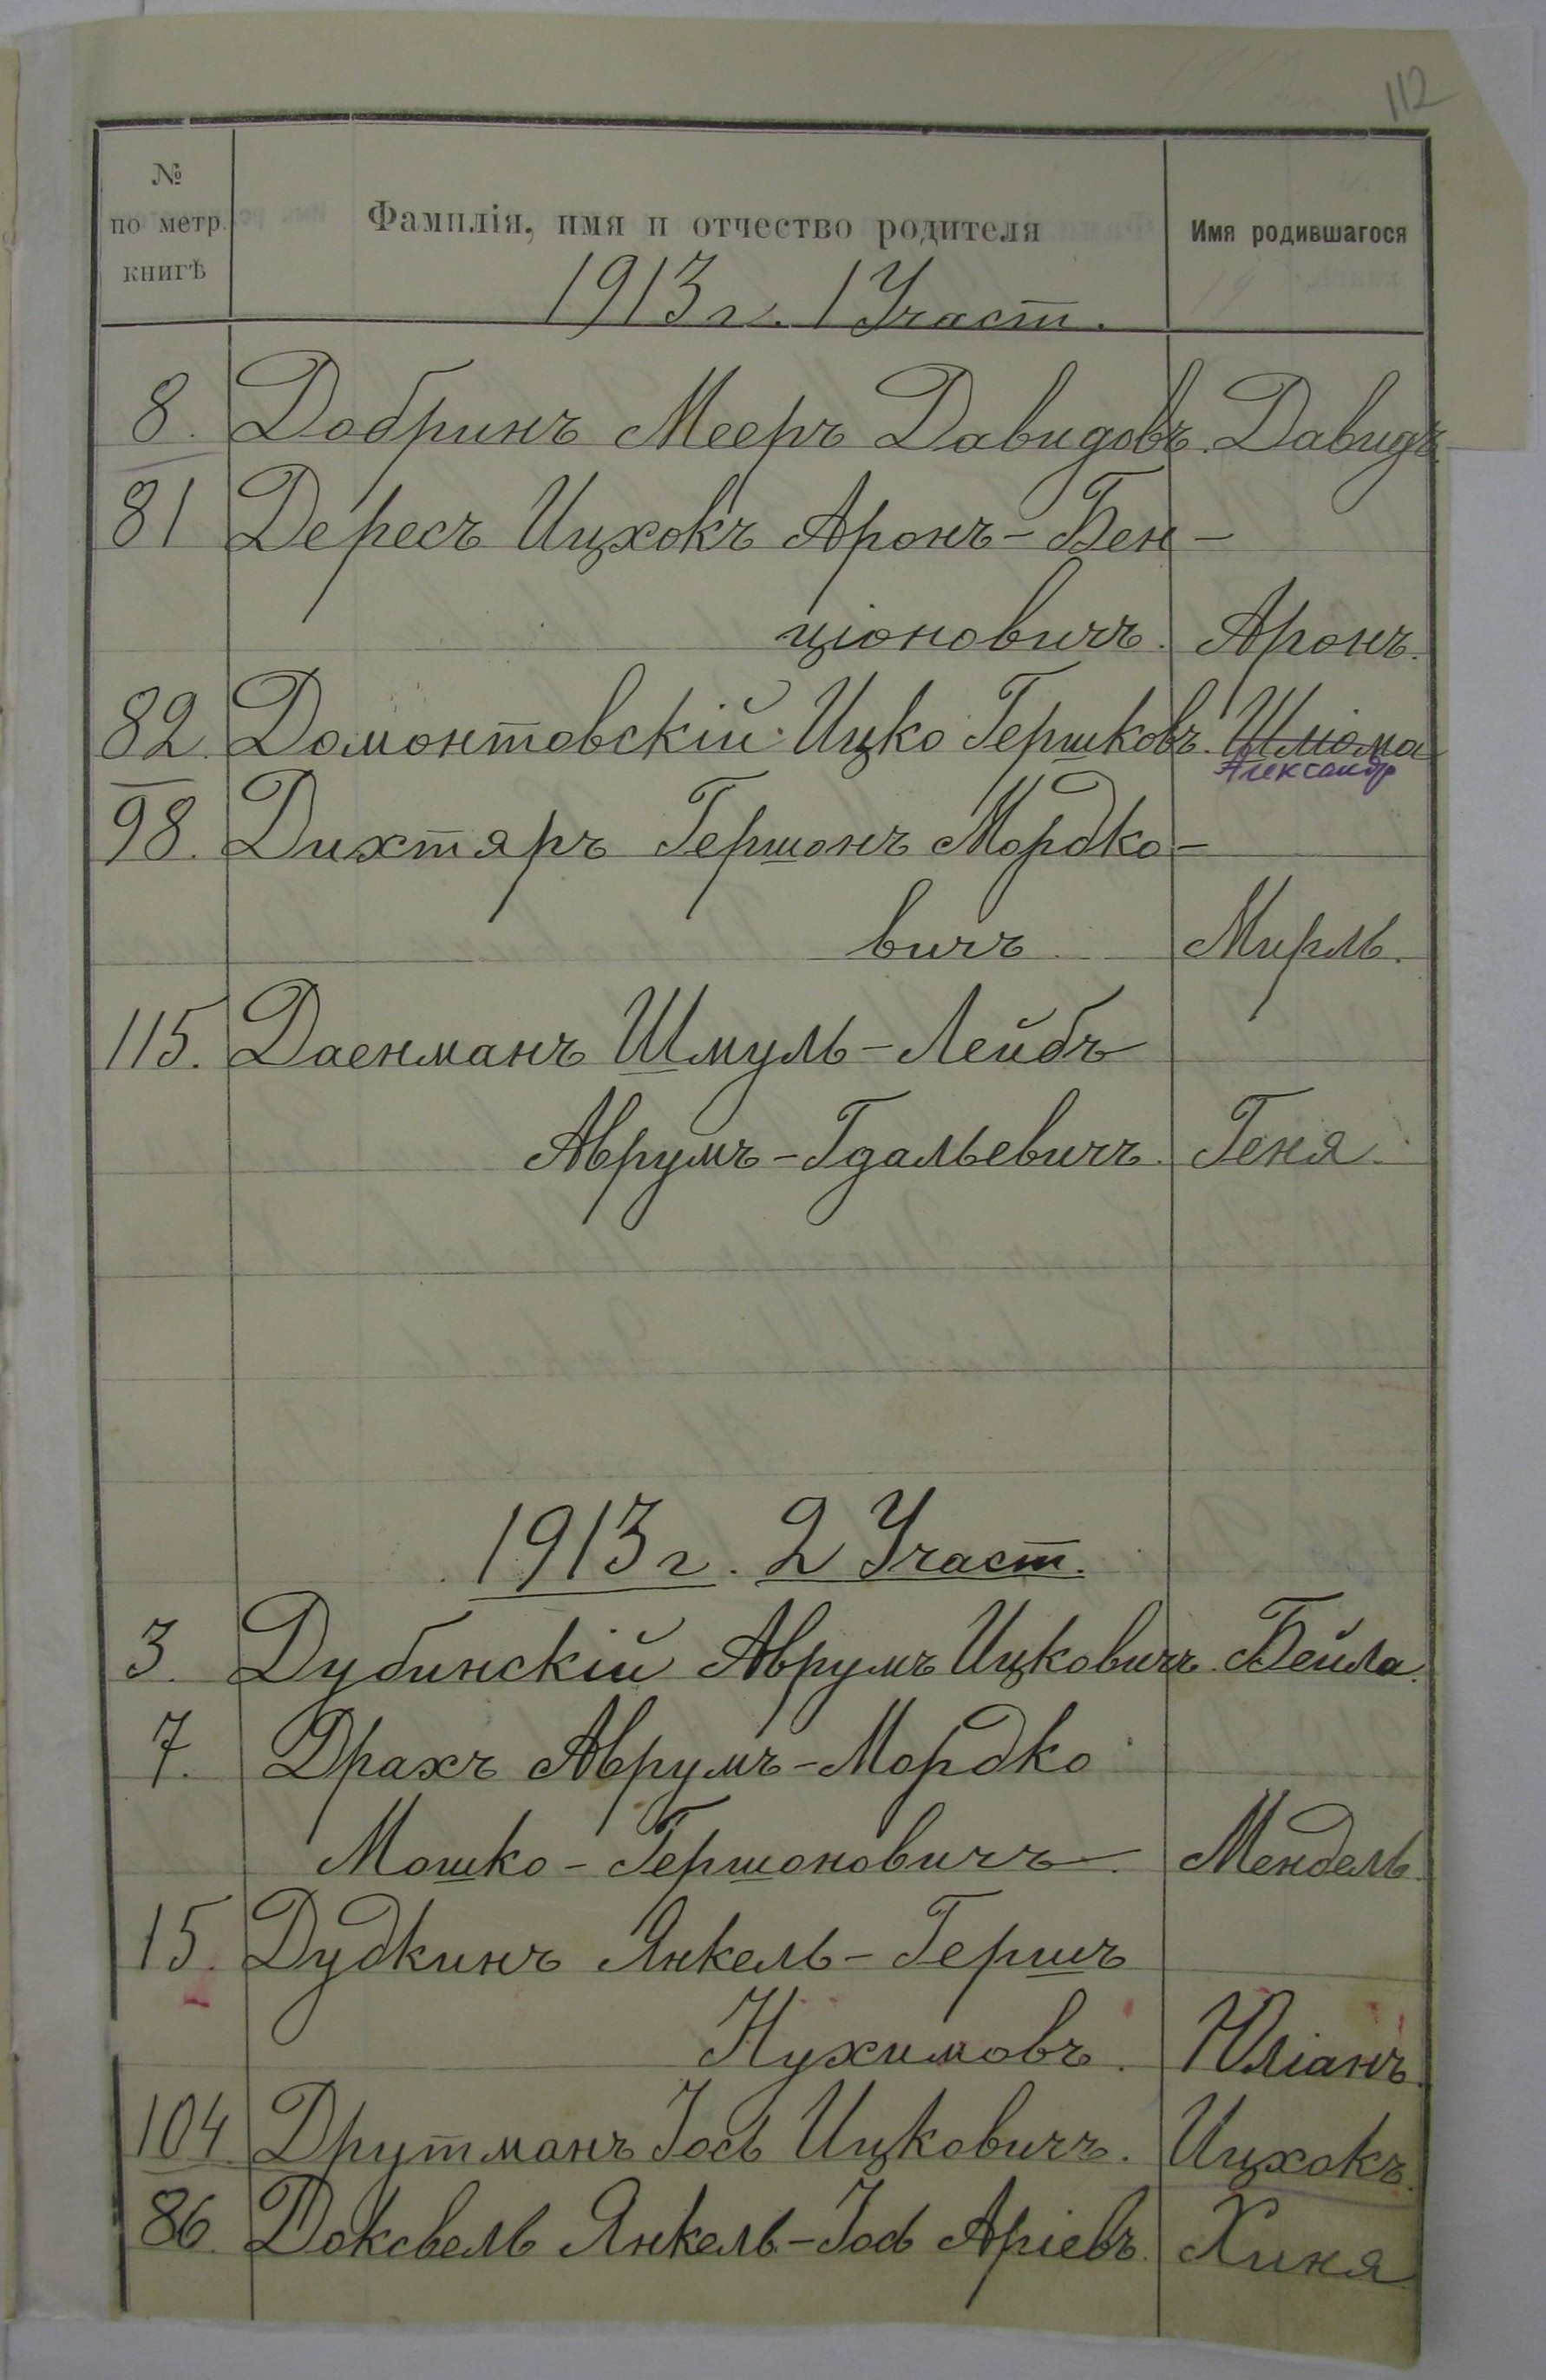 112
№ по метр. книгѣ Фамилія, имя и отчество родителя Имя родившагося
1913 г. 1 Участ.
8. Добринъ Мееръ Давидовъ. Давидъ.
81 Дересъ Ицхокъ Аронъ-Бен-
ціоновичъ. Аронъ.
82. Домонтовскій Ицко Гершковъ. Шліома
Александр
98. Дихтяръ Гершонъ Мордко-
вичъ Мирль.
115. Даенманъ Шмуль-Лейбъ
Аврумъ-Гдальевичъ. Геня.
1913 г. 2 Участ.
3. Дубинскій Аврумъ Ицковичъ. Бейла.
7. Драхъ Аврумъ-Мордко
Мошко-Гершоновичъ. Мендель.
15. Дудкинъ Янкель-Гершъ
Нухимовъ. Юліанъ.
104. Друтманъ Іось Ицковичъ. Ицхокъ.
86. Доксвель Янкель-Іось Аріевъ. Хиня